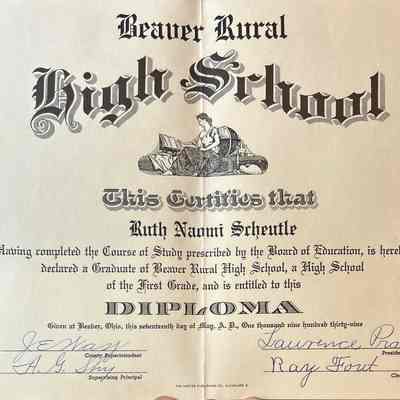 Beaver Rural
High School
This Certifies that
Ruth Naomi Scheutle
Having completed the Course of Study prescribed by the Board of Education, is here
declared a Graduate of Beaver Rural High School, a High School
of the First Grade, and is entitled to this
DIPLOMA
Given at Beaver, Ohio, this seventeenth day of May, A. D., One thousand nine hundred thirty-nine
Lawrence Pra
County Superintendent
President
A. G.
Ray Fout
Supervising Principal
Cle